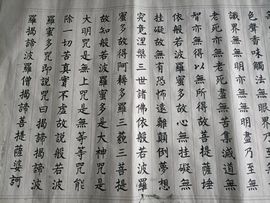 色聲香味觸法無眼
識界無無明亦無無明盡乃至無
老死亦無老死盡無苦集滅道無
智亦無得以無所得故菩提薩埵
依般若波羅蜜多故心無挂礙無
挂礙故無有恐怖遠離顛倒夢想
究竟涅槃三世諸佛依般若波羅
蜜多故得阿耨多羅三藐三菩提
故知般若波羅蜜多是大神咒是
大明咒是無上咒是無等等咒能
除一切苦真實不虛故說般若波
羅蜜多咒即說咒曰揭諦揭諦波
羅揭諦波羅僧揭諦菩提薩婆訶